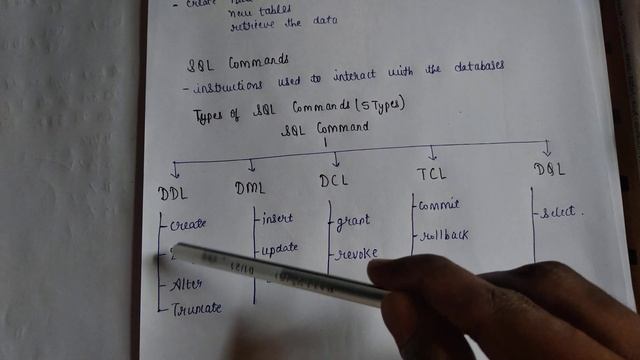 - create
new tables
retrieve the data
SQL Commands
- instructions used to interact with the databases
Types of SQL Commands (5 Types)
SQL Command
DDL DML DCL TCL DQL
create insert grant commit select.
update revoke rollback
Alter
Truncate